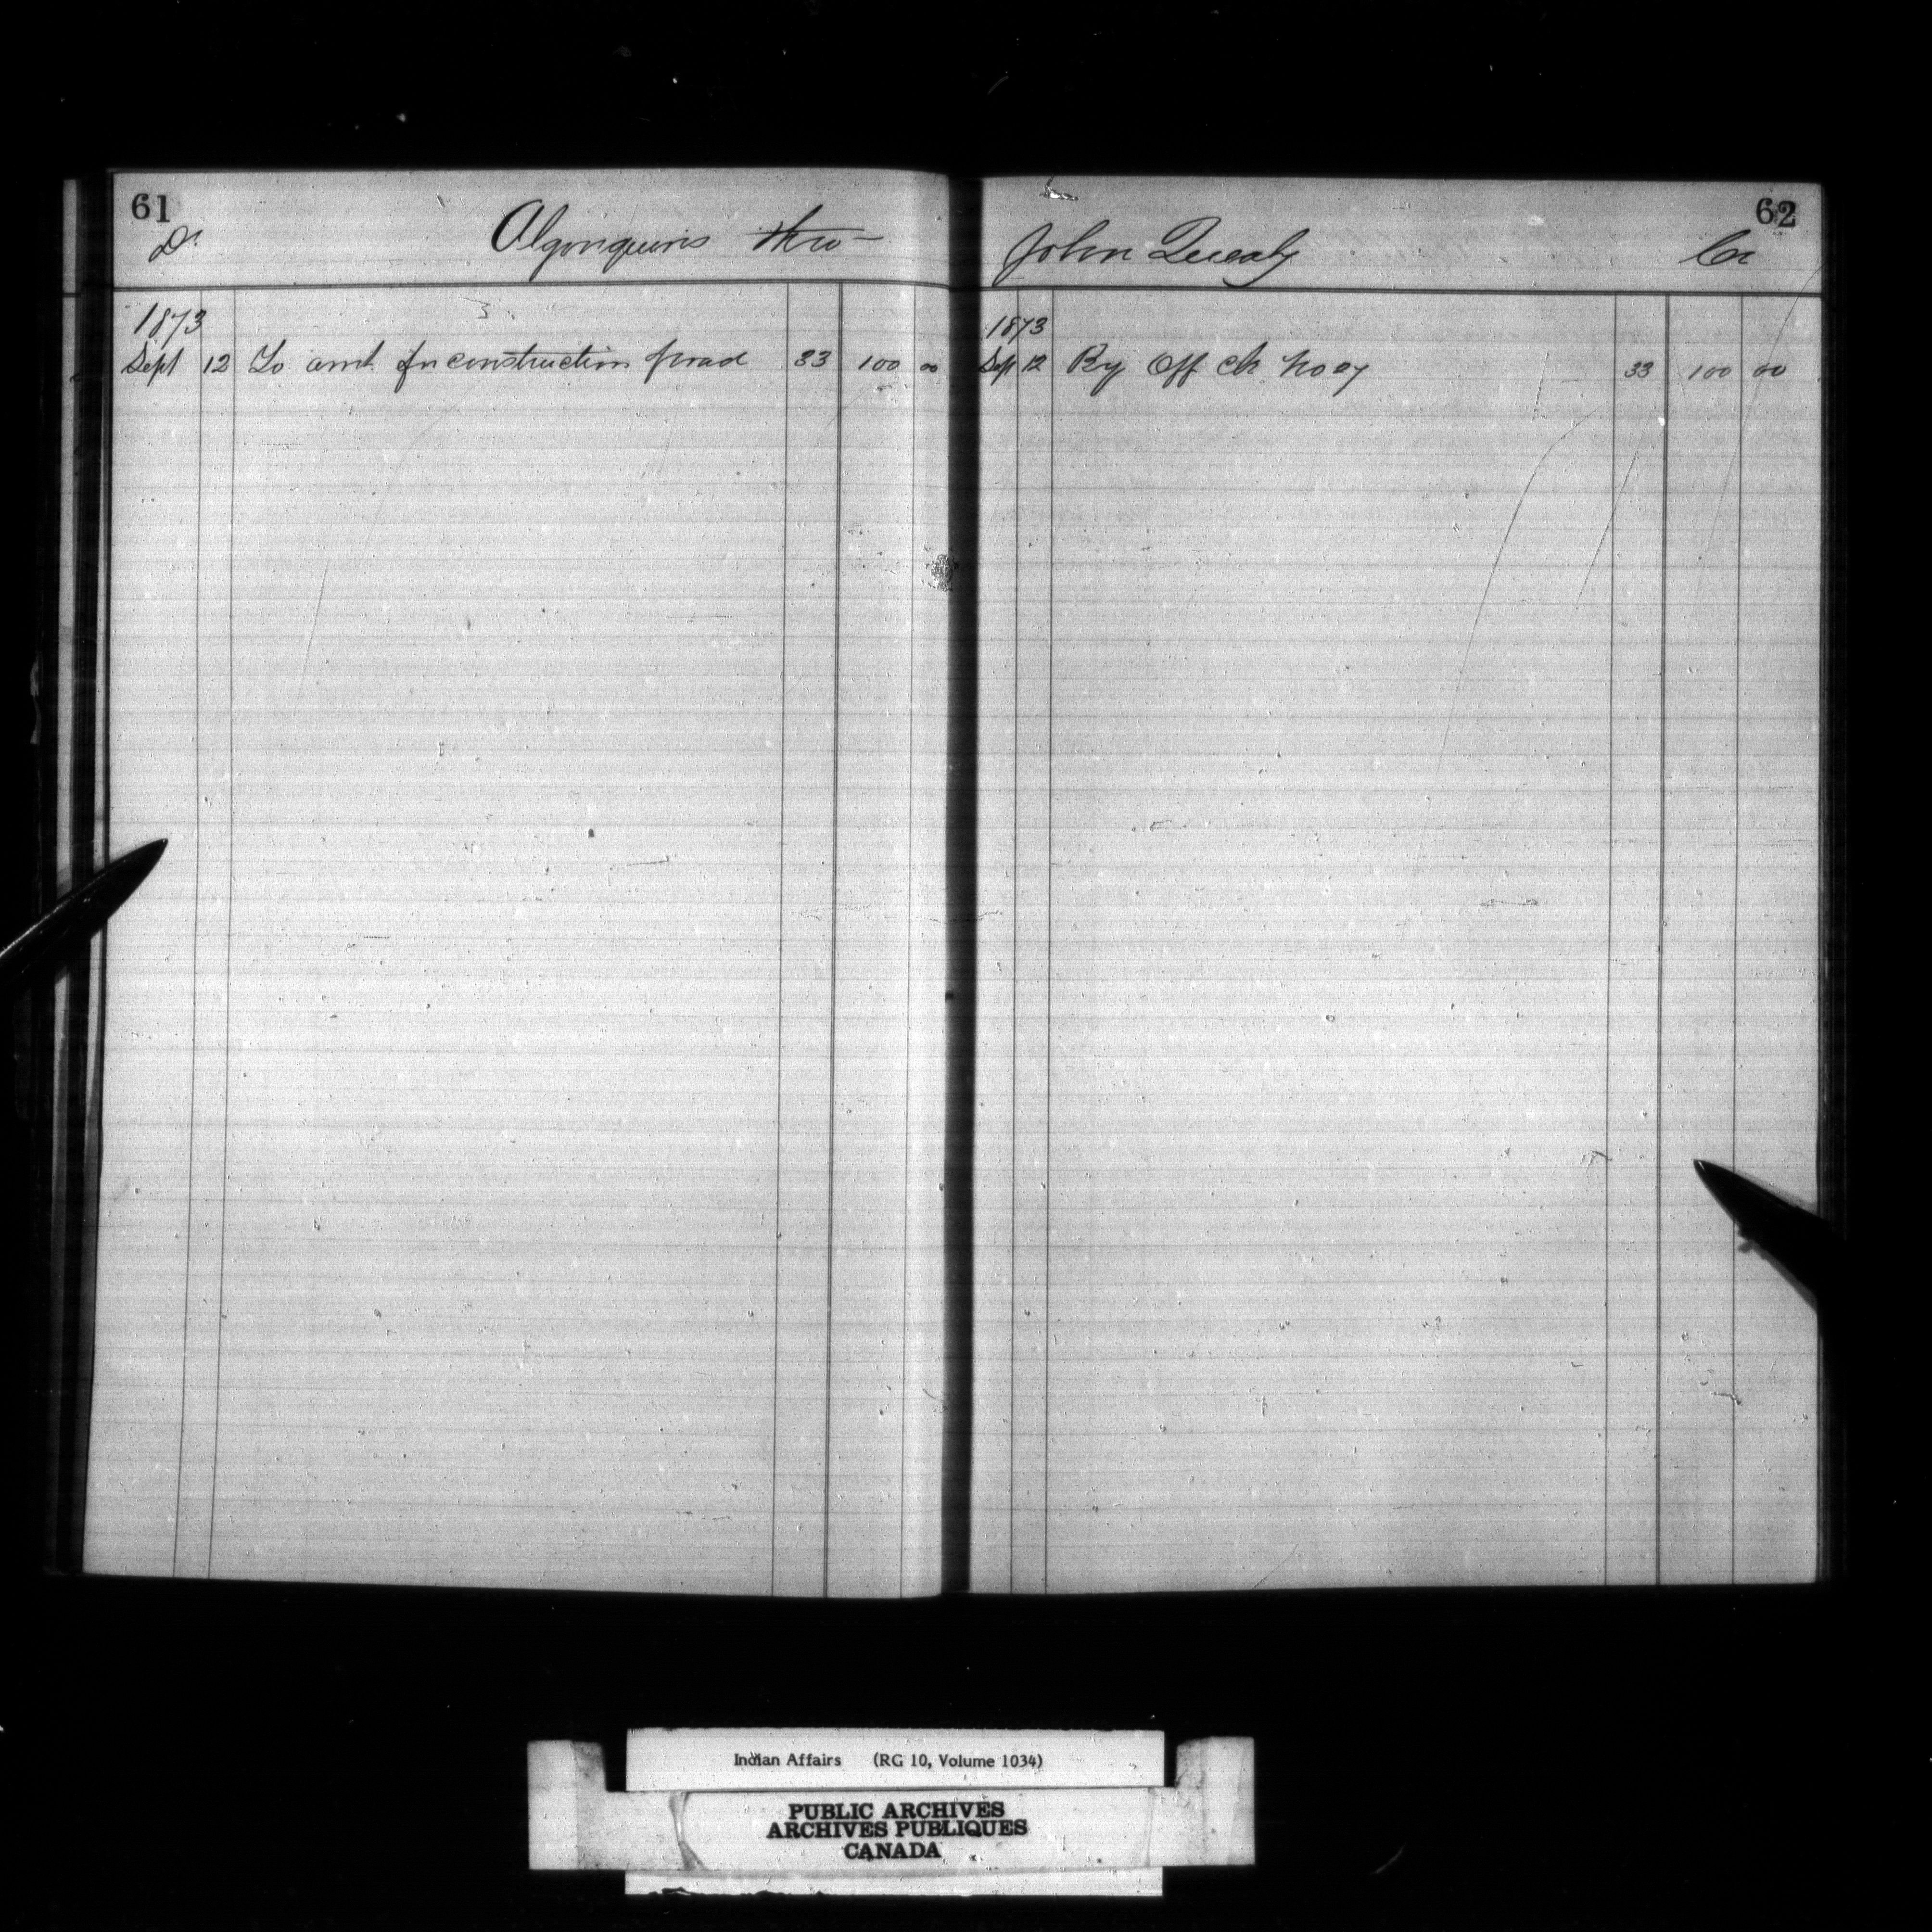 61
Dr. Algonquins thro-
1873
Sept 12 To amt for construction of road 33 100 00
62
John Quealy Cr
1873
Sept 12 By Off Ck No 33 100 00
Indian Affairs (RG 10, Volume 1034)
PUBLIC ARCHIVES
ARCHIVES PUBLIQUES
CANADA